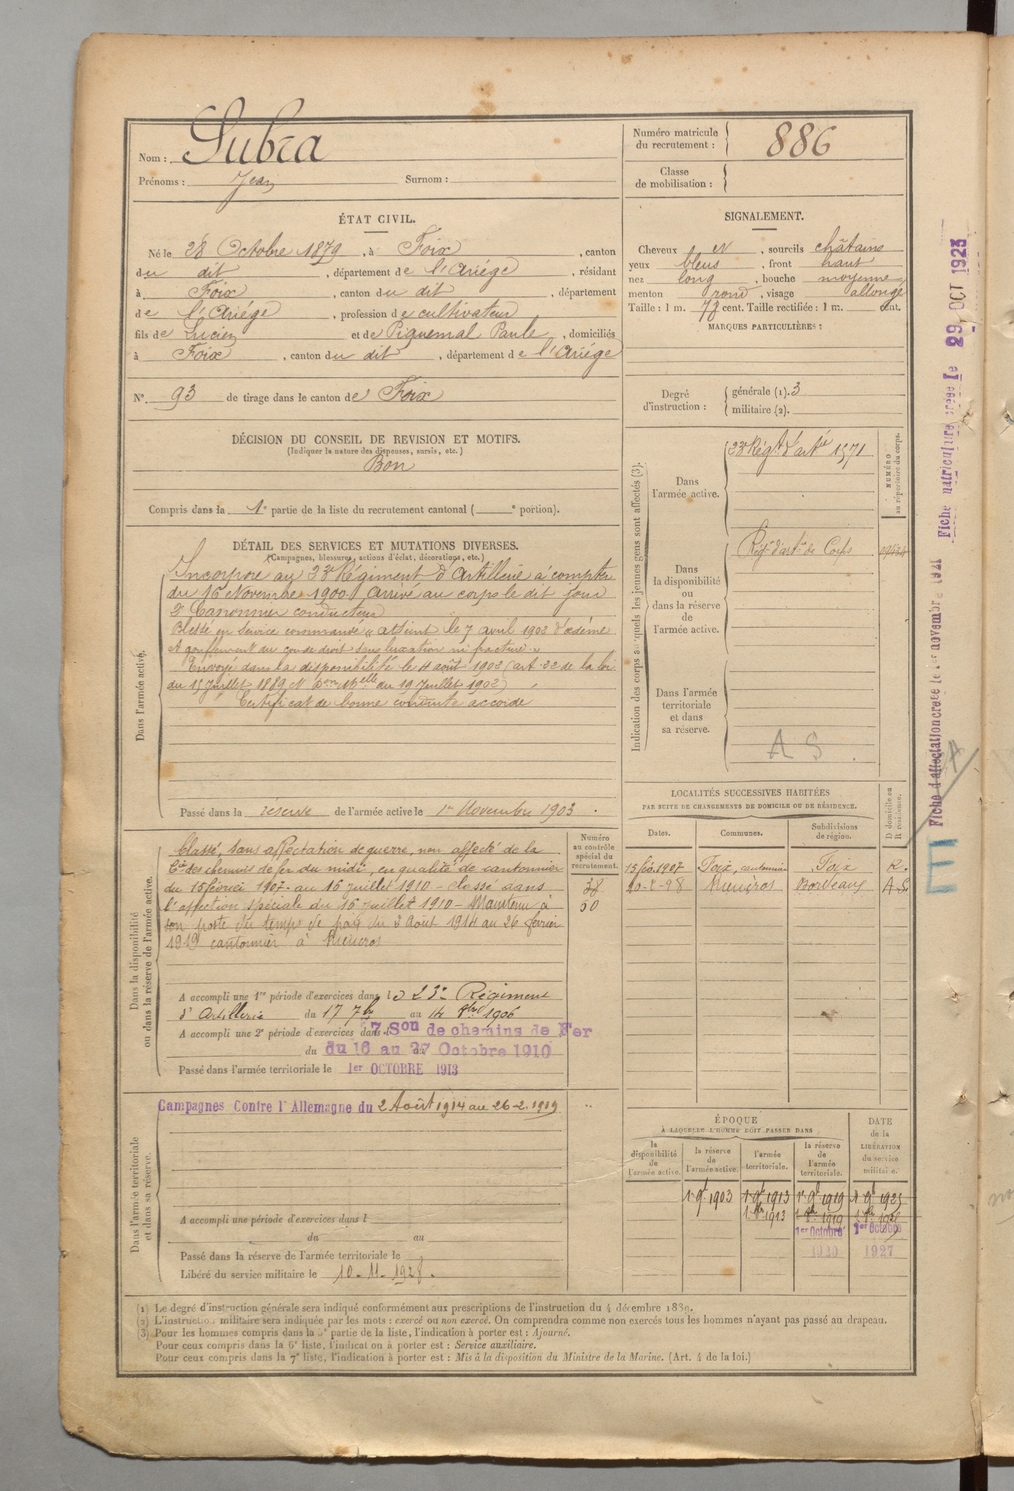 Nom : Subra
Prénoms : Jean Surnom :
Numéro matricule du recrutement : 886
Classe de mobilisation :
ÉTAT CIVIL.
Né le 28 Octobre 1879, à Foix, canton
du dit, département de l'Ariége, résidant
à Foix, canton du dit, département
de l'Ariége, profession de cultivateur
fils de Lucien et de Piquemal Paule, domiciliés
à Foix, canton du dit, département de l'Ariége
N° 93 de tirage dans le canton de Foix
SIGNALEMENT.
Cheveux N, sourcils châtains
yeux bleus, front haut
nez long, bouche moyenne
menton rond, visage allongé
Taille : 1 m. 73 cent. Taille rectifiée : 1 m. cent.
MARQUES PARTICULIÈRES :
Degré d'instruction : générale (1). 3
militaire (2).
DÉCISION DU CONSEIL DE REVISION ET MOTIFS.
(Indiquer la nature des dispenses, sursis, etc.)
Bon
Compris dans la 1e partie de la liste du recrutement cantonal ( e portion).
DÉTAIL DES SERVICES ET MUTATIONS DIVERSES.
(Campagnes, blessures, actions d'éclat, décorations, etc.)
Dans l'armée active.
Incorporé au 23e Régiment d'Artillerie à compter
du 16 Novembre 1900. Arrivé au corps le dit jour
2e Canonnier conducteur
Blessé en service commandé « atteint le 7 avril 1902 d'œdème
et gonflement du coude droit sans luxation ni fracture »
Envoyé dans la disponibilité le 4 août 1902 (art. 22 de la loi
du 15 Juillet 1889 et du 19 Juillet 1902)
Certificat de bonne conduite accordé
Passé dans la réserve de l'armée active le 1er Novembre 1903.
Indication des corps auxquels les jeunes gens sont affectés (3).
NUMÉRO au répertoire du corps.
Dans l'armée active.
23e Régt d'artie 1571
Dans la disponibilité ou dans la réserve de l'armée active.
Régt d'artie de Corps
Dans l'armée territoriale et dans sa réserve.
A S
LOCALITÉS SUCCESSIVES HABITÉES
PAR SUITE DE CHANGEMENTS DE DOMICILE OU DE RÉSIDENCE.
Dates. Communes. Subdivisions de région. D domicile ou R résidence.
15 fév. 1907 Foix, cantonnier Foix R.
Bordeaux
Dans la disponibilité ou dans la réserve de l'armée active.
Numéro au contrôle spécial du recrutement.
38
50
Classé, sans affectation de guerre, non affecté de la
Cie des chemins de fer du midi, en qualité de cantonnier
du 15 février 1907 au 15 juillet 1910 - classé dans
l'affection spéciale du 16 juillet 1910 - Maintenu à
son poste du temps de paix du 2 Août 1914 au 26 février
1919 cantonnier à
A accompli une 1re période d'exercices dans le 23e Régiment
d'Artillerie du 17 7bre au 14 8bre 1906
A accompli une 2e période d'exercices dans l 7 Son de chemins de Fer
du du 16 au 27 Octobre 1910
Passé dans l'armée territoriale le 1er OCTOBRE 1913
Dans l'armée territoriale et dans sa réserve.
Campagnes Contre l'Allemagne du 2 Août 1914 au 26-2-1919
A accompli une période d'exercices dans l
du au
Passé dans la réserve de l'armée territoriale le
Libéré du service militaire le 10-11-1928.
ÉPOQUE
À LAQUELLE L'HOMME DOIT PASSER DANS
la disponibilité de l'armée active. la réserve de l'armée active. l'armée territoriale. la réserve de l'armée territoriale. DATE de la LIBÉRATION du service militaire.
1 9bre 1903 1 9bre 1913 1 9bre 1919 1 9bre 1925
1er Octobre 1er Octobre
1920 1927
(1) Le degré d'instruction générale sera indiqué conformément aux prescriptions de l'instruction du 4 décembre 1889.
(2) L'instruction militaire sera indiquée par les mots : exercé ou non exercé. On comprendra comme non exercés tous les hommes n'ayant pas passé au drapeau.
(3) Pour les hommes compris dans la 5e partie de la liste, l'indication à porter est : Ajourné.
Pour ceux compris dans la 6e liste, l'indication à porter est : Service auxiliaire.
Pour ceux compris dans la 7e liste, l'indication à porter est : Mis à la disposition du Ministre de la Marine. (Art. 4 de la loi.)
Fiche d'affectation créée le 1er novembre 1921
Fiche matriculaire créée le 29 OCT 1923